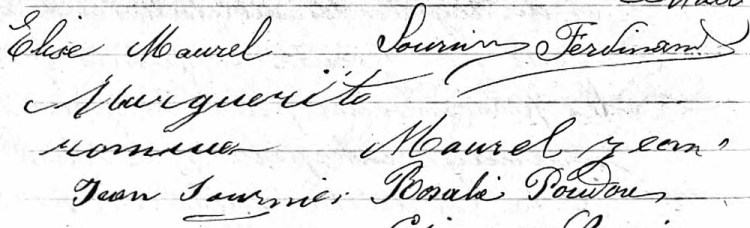 Elise Maurel Fournier Ferdinand
Marguerite
Maurel jean
Jean Fournier Rosalie Poudou